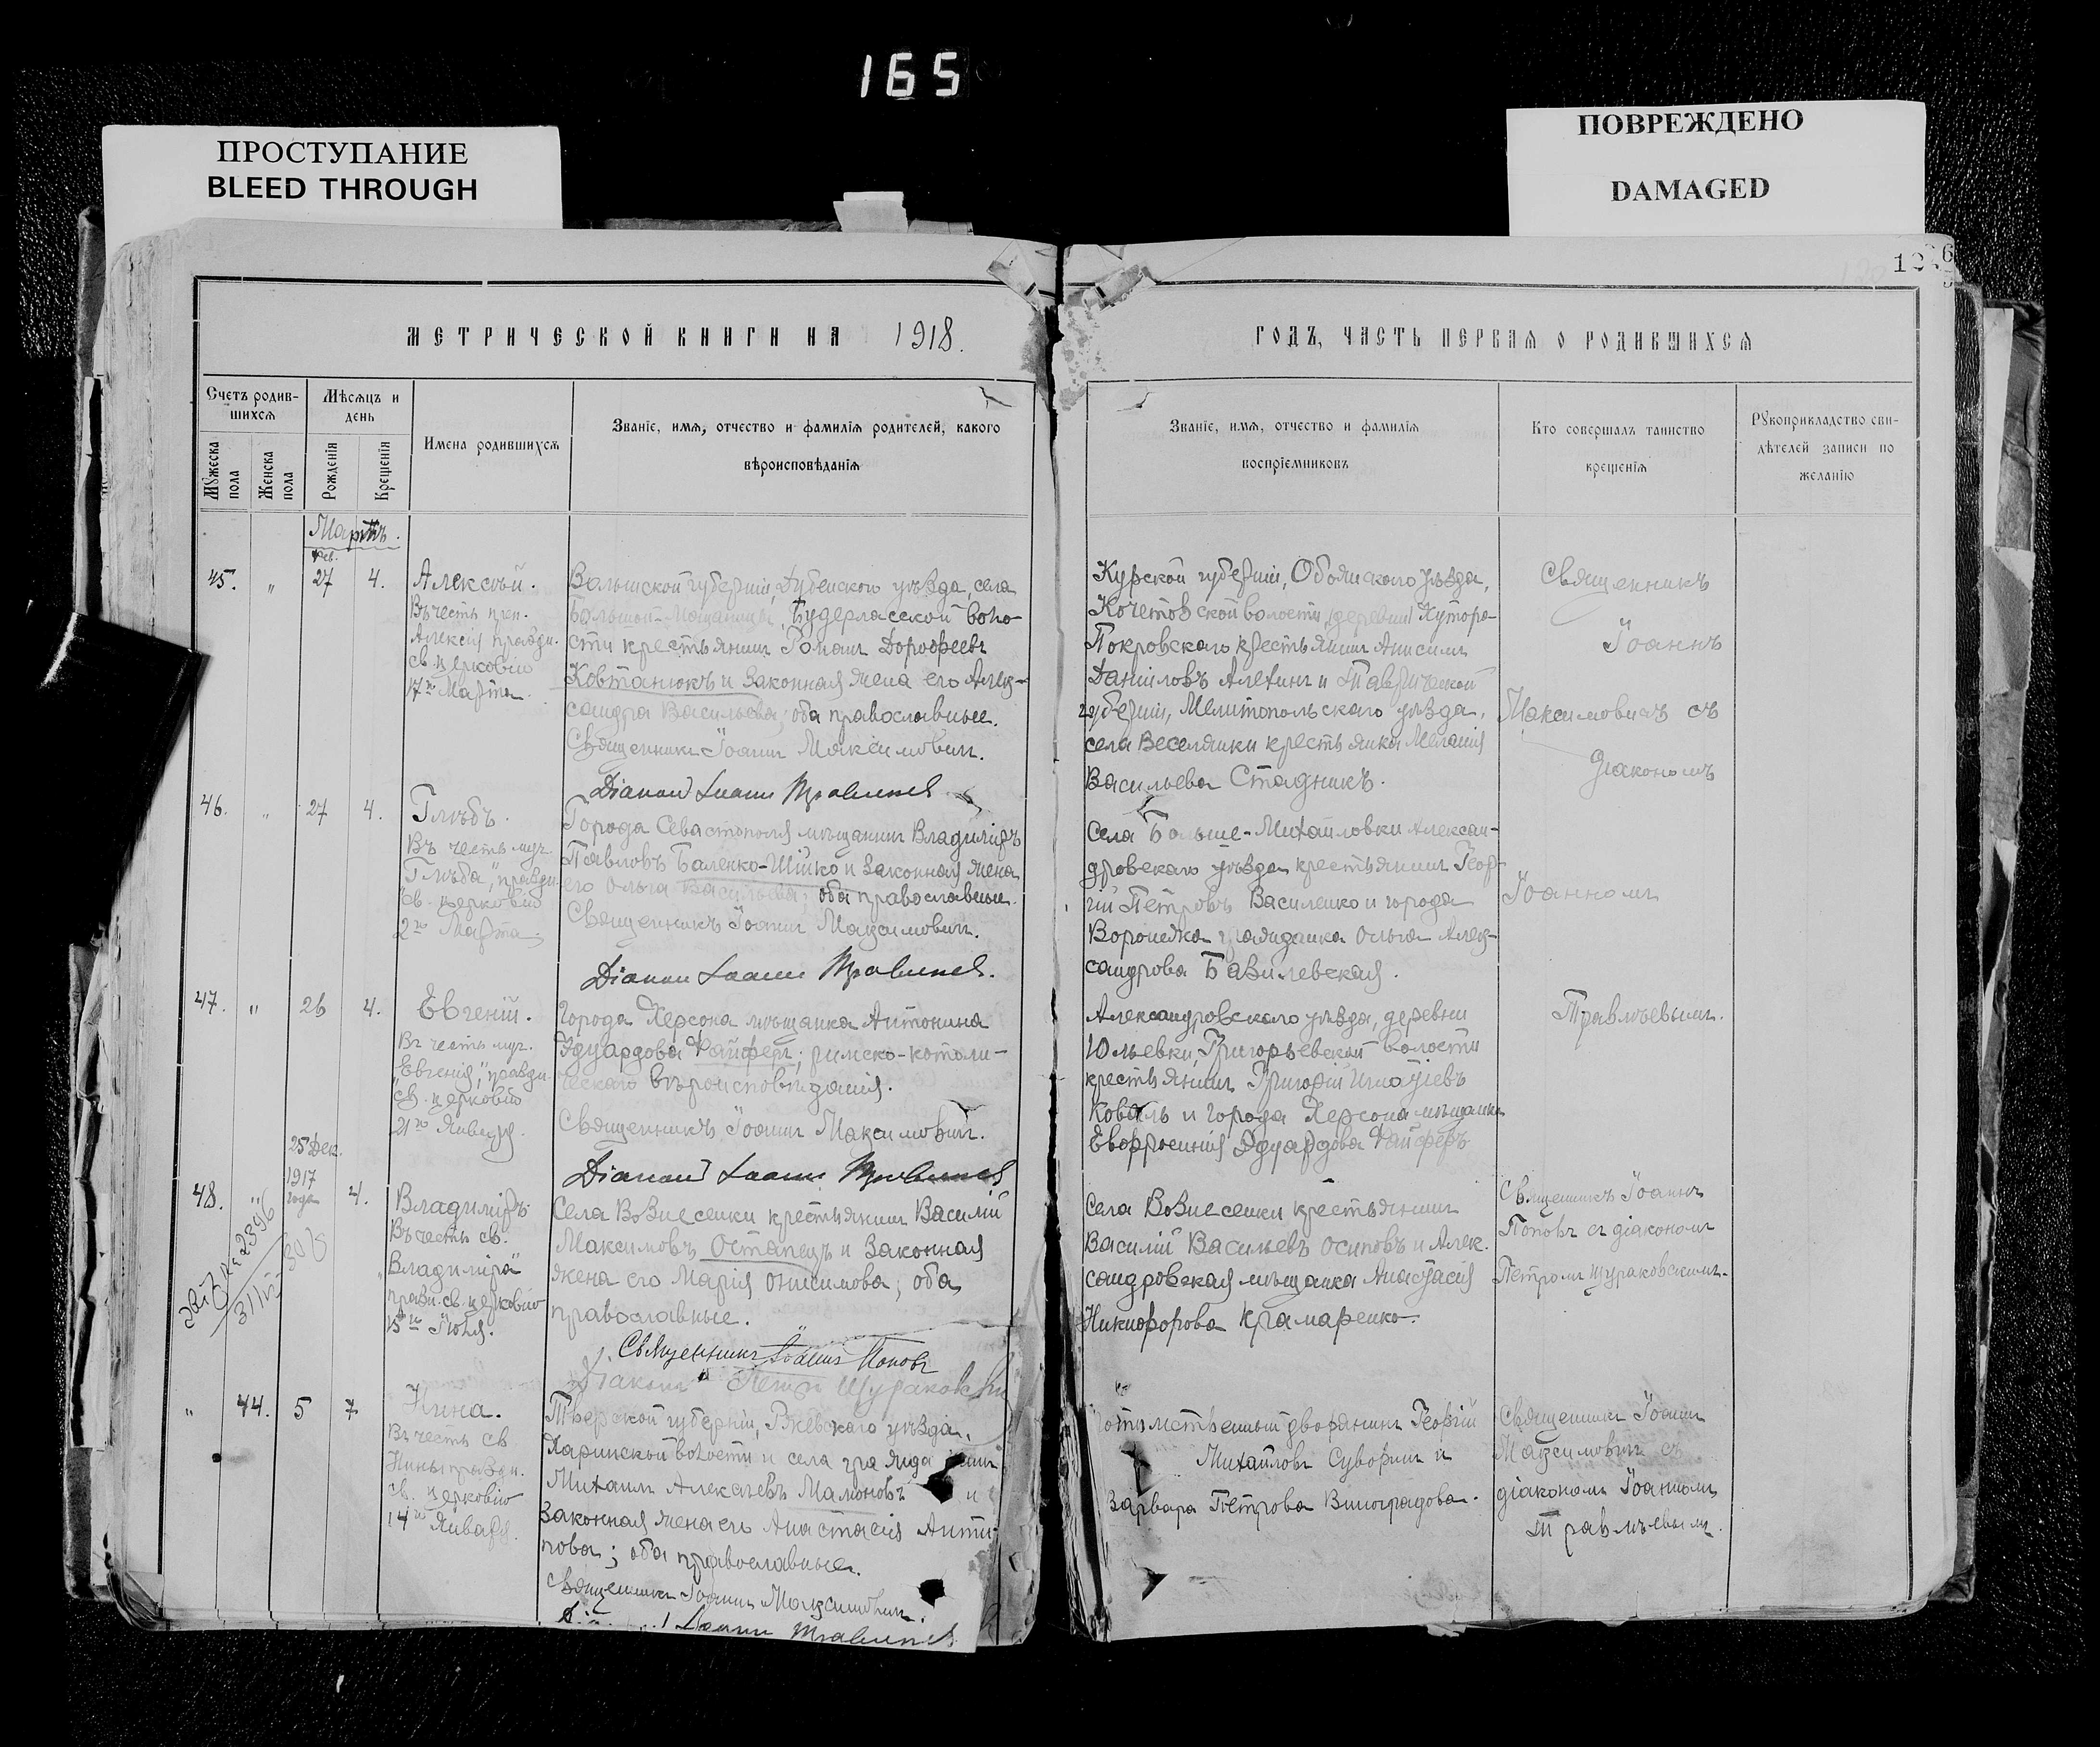 165
ПРОСТУПАНИЕ
BLEED THROUGH
ПОВРЕЖДЕНО
DAMAGED
МЕТРИЧЕСКОЙ КНИГИ НА 1918.
Счетъ родив-
шихся
Мѣсяцъ и
день
Мужеска
пола
Женска
пола
Рожденія
Крещенія
Имена родившихся
Званіе, имя, отчество и фамилія родителей, какого
вѣроисповѣданія
Мартъ.
Фев.
45. " 27 4.
Алексѣй.
Въ честь преп.
Алексія праздн.
св. церковію
17го Марта.
Волынской губерніи, Дубенскаго уѣзда, села
Большой-Мощаницы, Будеражской воло-
сти крестьянинъ Романъ Дорофеевъ
Ковтанюкъ и законная жена его Алек-
сандра Васильева; оба православные.
Священникъ Іоаннъ Максимовичъ.
46. " 27 4.
Глѣбъ.
Въ честь муч.
Глѣба, праздн.
св. церковію
2го Марта.
Города Севастополя мѣщанинъ Владиміръ
Павловъ Баленко-Шійко и законная жена
его Ольга Васильева; оба православные.
Священникъ Іоаннъ Максимовичъ.
47. " 26 4.
Евгеній.
Въ честь муч.
Евгенія, праздн.
св. церковію
21го Января.
Города Херсона мѣщанка Антонина
Эдуардова Файферъ; римско-католи-
ческаго вѣроисповѣданія.
Священникъ Іоаннъ Максимовичъ.
25 Дек.
1917
года
48. " 4.
Владиміръ.
Въ честь св.
Владиміра
празн. св. церковію
15го Іюля.
Села Вознесенки крестьянинъ Василій
Максимовъ Остапецъ и законная
жена его Марія Онисимова; оба
православные.
Священникъ Іоаннъ Поповъ
Діаконъ Петръ
" 44. 5 7
Нина.
Въ честь св.
Нины праздн.
св. церковію
14го Января.
Тверской губерніи, Ржевскаго уѣзда,
волости и села
Михаилъ Алексѣевъ Мамоновъ и
законная жена его Анастасія Анти-
пова; оба православные.
Священникъ Іоаннъ Максимовичъ.
ГОДЪ, ЧАСТЬ ПЕРВАЯ О РОДИВШИХСЯ
Званіе, имя, отчество и фамилія
воспріемниковъ
Кто совершалъ таинство
крещенія
Рукоприкладство сви-
дѣтелей записи по
желанію
Курской губерніи, Обоянскаго уѣзда,
Кочетовской волости, деревни Хутора-
Покровскаго крестьянинъ Анисимъ
Даниловъ Алехинъ и Таврической
губерніи, Мелитопольскаго уѣзда,
села Веселянки крестьянка Меланія
Васильева Стадникъ.
Села Больше-Михайловки Алексан-
дровскаго уѣзда крестьянинъ Геор-
гій Петровъ Василенко и города
Воронежа гражданка Ольга Алек-
сандрова Базилевская.
Александровскаго уѣзда, деревни
Юльевки, Григорьевской волости
крестьянинъ Григорій Игнатіевъ
Коваль и города Херсона мѣщанка
Евфросинія Эдуардова Файферъ
Священникъ
Іоаннъ
Максимовичъ съ
діакономъ
Іоанномъ
Травлѣевымъ.
Села Вознесенки крестьянинъ
Василій Васильевъ Осиповъ и Алек-
сандровская мѣщанка Анастасія
Никифорова Крамаренко.
Священникъ Іоаннъ
Поповъ съ діакономъ
Петромъ
Потомственный дворянинъ Георгій
Михаиловъ Суворинъ и
Варвара Петрова Виноградова.
Священникъ Іоаннъ
Максимовичъ съ
діакономъ Іоанномъ
Травлѣевымъ.